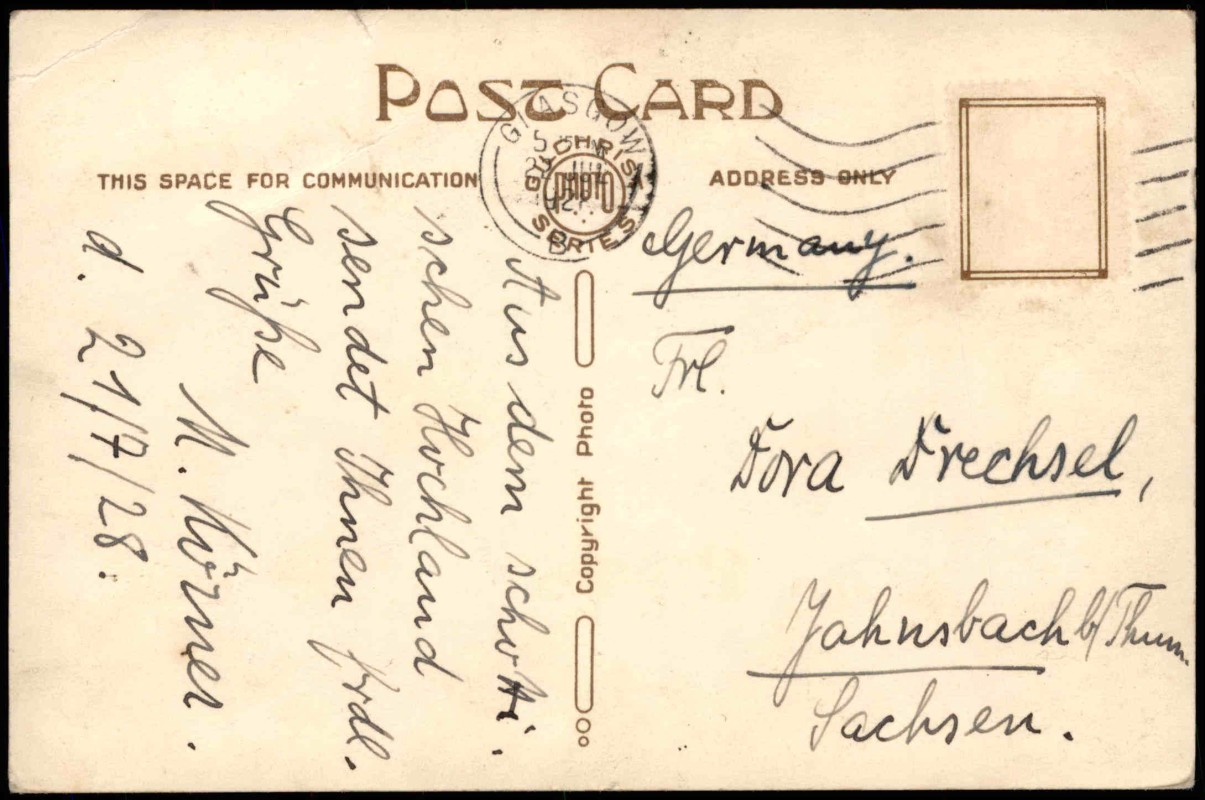 POST CARD
THIS SPACE FOR COMMUNICATION
ADDRESS ONLY
GLASGOW
PHOTO
SERIES
Copyright Photo
Aus dem schotti.
schen Hochland
sendet Ihnen frdl.
Grüße
M. Körner.
d. 21/7/28.
Germany.
Frl.
Dora Drechsel,
Jahnsbach b/Thum.
Sachsen.